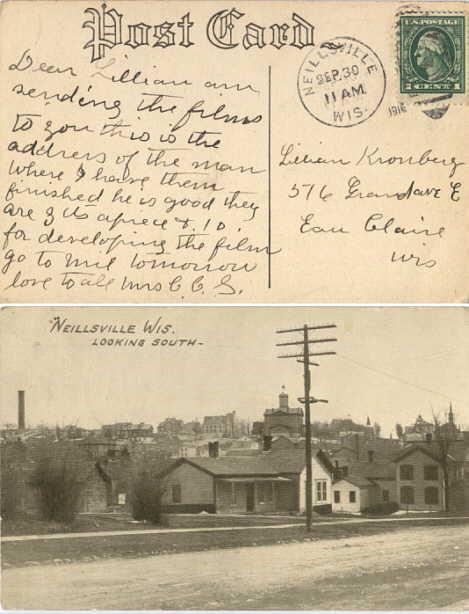 Post Card
NEILLSVILLE
SEP. 30
11 AM
WIS.
1916
U.S. POSTAGE
1 CENT 1
Dear Lillian am
sending the films
to you this is the
address of the man
where I have them
finished he is good they
are 3 cts apiece & .10.
for developing the film
go to mil tomorrow
love to all Mrs C. C. S.
Lillian Kronberg
516 Grand ave E
Eau Claire
Wis
NEILLSVILLE WIS.
LOOKING SOUTH-